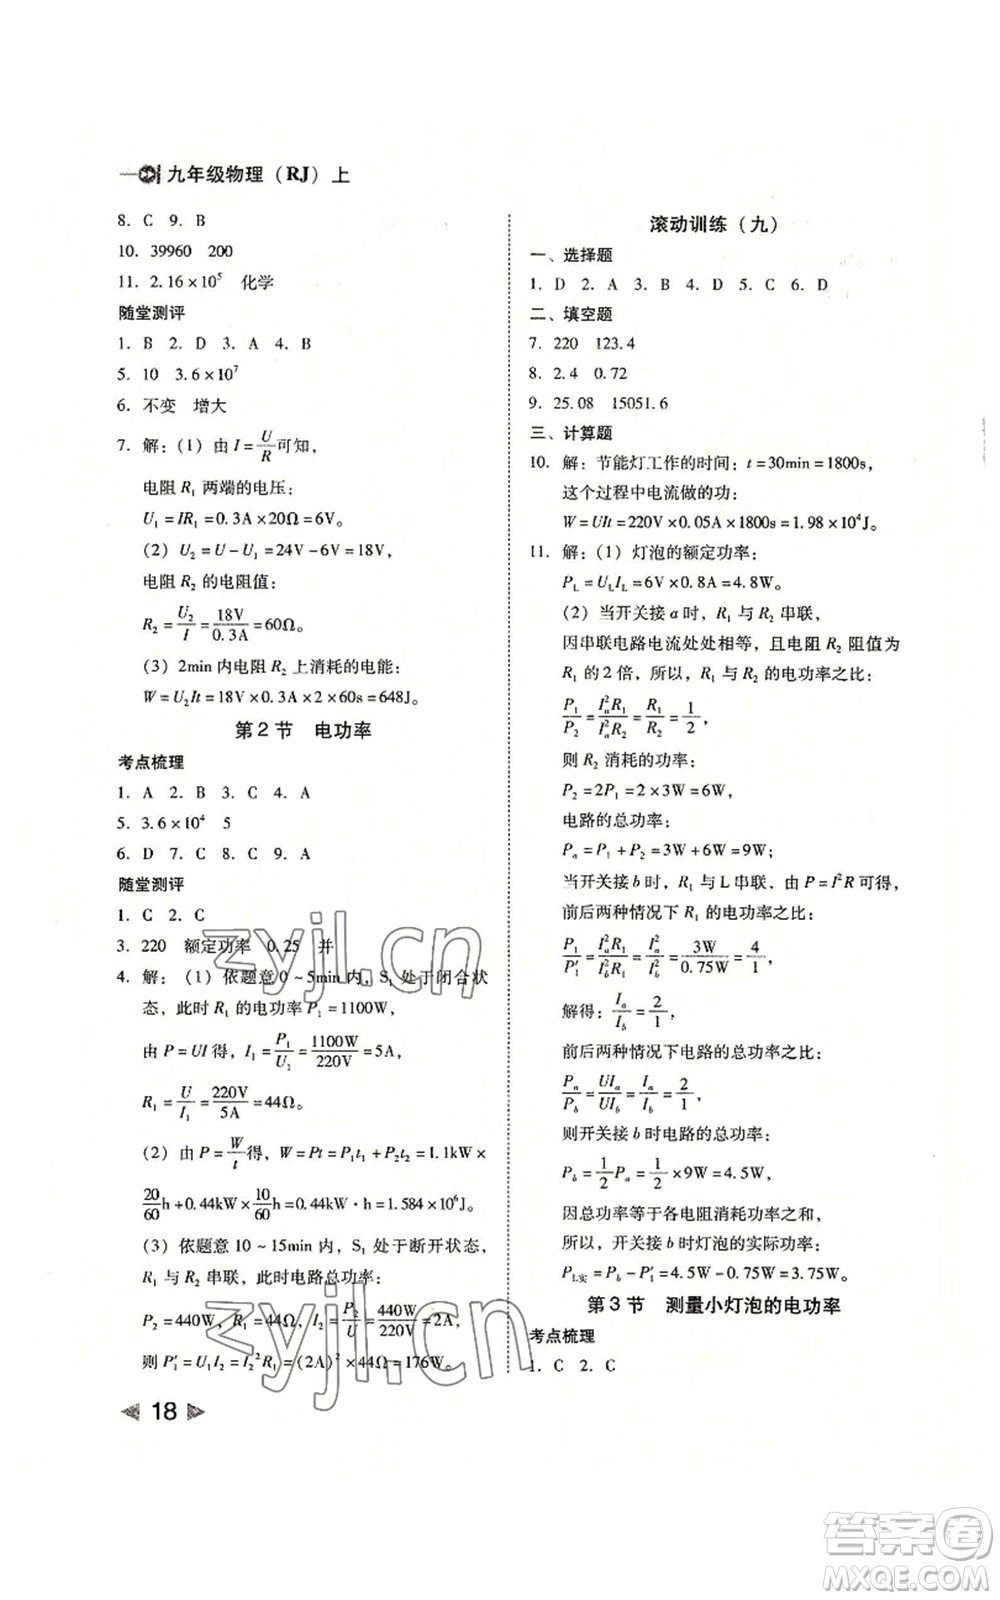 九年级物理（RJ）上
8. C 9. B
10. 39960 200
11. 2.16×10⁵ 化学
随堂测评
1. B 2. D 3. A 4. B
5. 10 3.6×10⁷
6. 不变 增大
7. 解：(1) 由 I=U/R 可知，
电阻 R₁ 两端的电压：
U₁=IR₁=0.3A×20Ω=6V。
(2) U₂=U-U₁=24V-6V=18V，
电阻 R₂ 的电阻值：
R₂=U₂/I=18V/0.3A=60Ω。
(3) 2min 内电阻 R₂ 上消耗的电能：
W=U₂It=18V×0.3A×2×60s=648J。
第2节 电功率
考点梳理
1. A 2. B 3. C 4. A
5. 3.6×10⁴ 5
6. D 7. C 8. C 9. A
随堂测评
1. C 2. C
3. 220 额定功率 0.25 并
4. 解：(1) 依题意 0~5min 内，S₁ 处于闭合状
态，此时 R₁ 的电功率 P₁=1100W，
由 P=UI 得，I₁=P₁/U₁=1100W/220V=5A，
R₁=U/I₁=220V/5A=44Ω。
(2) 由 P=W/t 得，W=Pt=P₁t₁+P₂t₂=1.1kW×
20/60h+0.44kW×10/60h=0.44kW·h=1.584×10⁶J。
(3) 依题意 10~15min 内，S₁ 处于断开状态，
R₁ 与 R₂ 串联，此时电路总功率：
P₂=440W，I₂=P₂/U=440W/220V=2A，
则 P₁′=U₁I₂=I₂²R₁=(2A)²×44Ω=176W。
18
滚动训练（九）
一、选择题
1. D 2. A 3. B 4. D 5. C 6. D
二、填空题
7. 220 123.4
8. 2.4 0.72
9. 25.08 15051.6
三、计算题
10. 解：节能灯工作的时间：t=30min=1800s，
这个过程中电流做的功：
W=UIt=220V×0.05A×1800s=1.98×10⁴J。
11. 解：(1) 灯泡的额定功率：
P_L=U_LI_L=6V×0.8A=4.8W。
(2) 当开关接 a 时，R₁ 与 R₂ 串联，
因串联电路电流处处相等，且电阻 R₂ 阻值为
R₁ 的 2 倍，所以，R₁ 与 R₂ 的电功率之比：
P₁/P₂=Iₐ²R₁/Iₐ²R₂=R₁/R₂=1/2，
则 R₂ 消耗的功率：
P₂=2P₁=2×3W=6W，
电路的总功率：
Pₐ=P₁+P₂=3W+6W=9W；
当开关接 b 时，R₁ 与 L 串联，由 P=I²R 可得，
前后两种情况下 R₁ 的电功率之比：
P₁/P₁′=Iₐ²R₁/I_b²R₁=3W/0.75W=4/1，
解得：Iₐ/I_b=2/1，
前后两种情况下电路的总功率之比：
Pₐ/P_b=UIₐ/UI_b=Iₐ/I_b=2/1，
则开关接 b 时电路的总功率：
P_b=1/2Pₐ=1/2×9W=4.5W，
因总功率等于各电阻消耗功率之和，
所以，开关接 b 时灯泡的实际功率：
P_L实=P_b-P₁′=4.5W-0.75W=3.75W。
第3节 测量小灯泡的电功率
考点梳理
1. C 2. C
zyjl.cn
zyjl.cn
答案卷
MXQE.COM